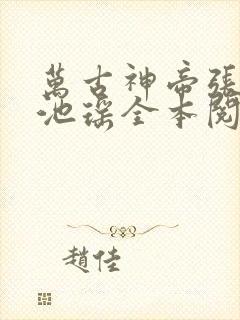 萬古神帝張
池瑤全本閱
趙佳